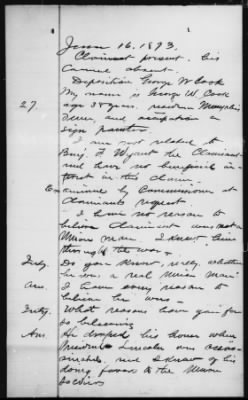 June 16, 1893.
Claimant present. his
Counsel absent.
Deposition George W Cook
My name is George W. Cook
27. age 38 years. residence Memphis
Tenn, and occupation a
sign painter
I am not related to
Benj. F. the Claimant
and have no beneficial in-
terest in this claim.
Examined by Commissioner at
Claimants request.
I have no reason to
believe Claimant was not a
Union man. I knew him
through the war.
Inty. Do you know, whether
he was a real Union man?
Ans. I have every reason to
believe he was.
Inty. What reasons have you for
so believing
Ans He draped his house when
President Lincoln was assas-
sinated, and I know of his
doing favors to the Union
soldiers